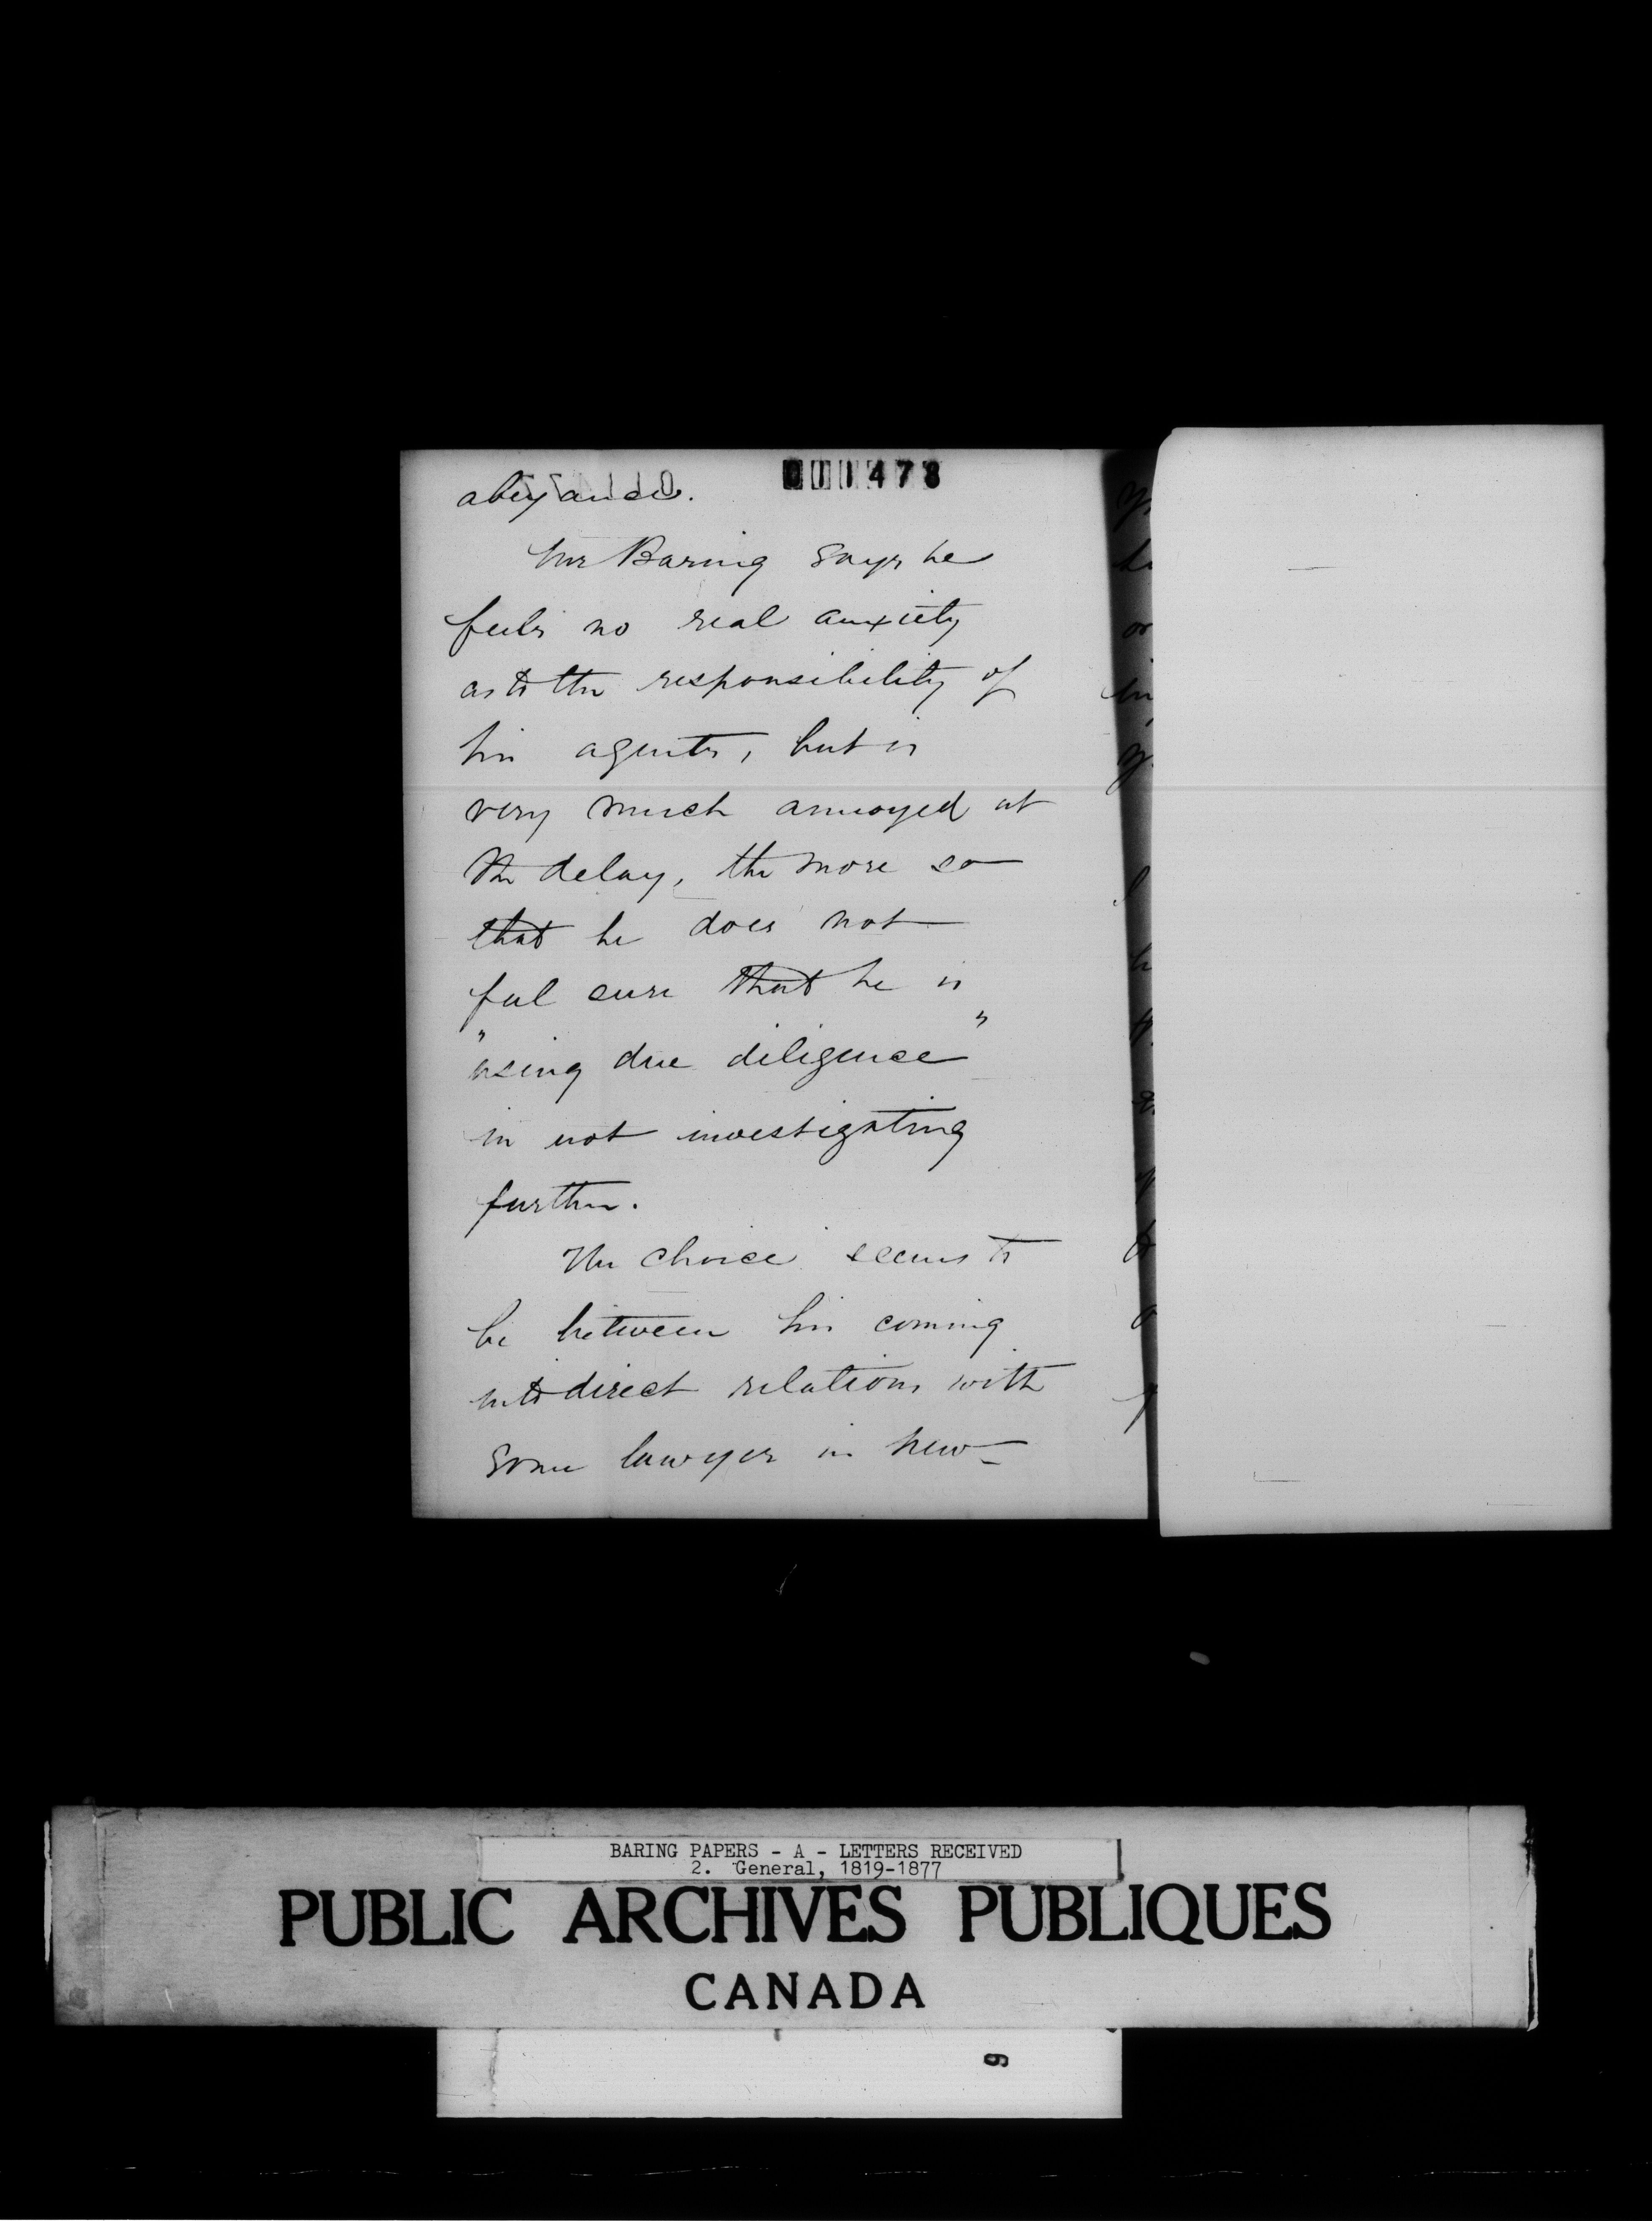 011478
abeyance.
Mr Baring says he
feels no real anxiety
as to the responsibility of
his agents, but is
very much annoyed at
the delay, the more so
that he does not
feel sure that he is
"using due diligence"
in not investigating
further.
The choice seems to
be between his coming
into direct relations with
some lawyer in New-
BARING PAPERS - A - LETTERS RECEIVED
2. General, 1819-1877
PUBLIC ARCHIVES PUBLIQUES
CANADA
9